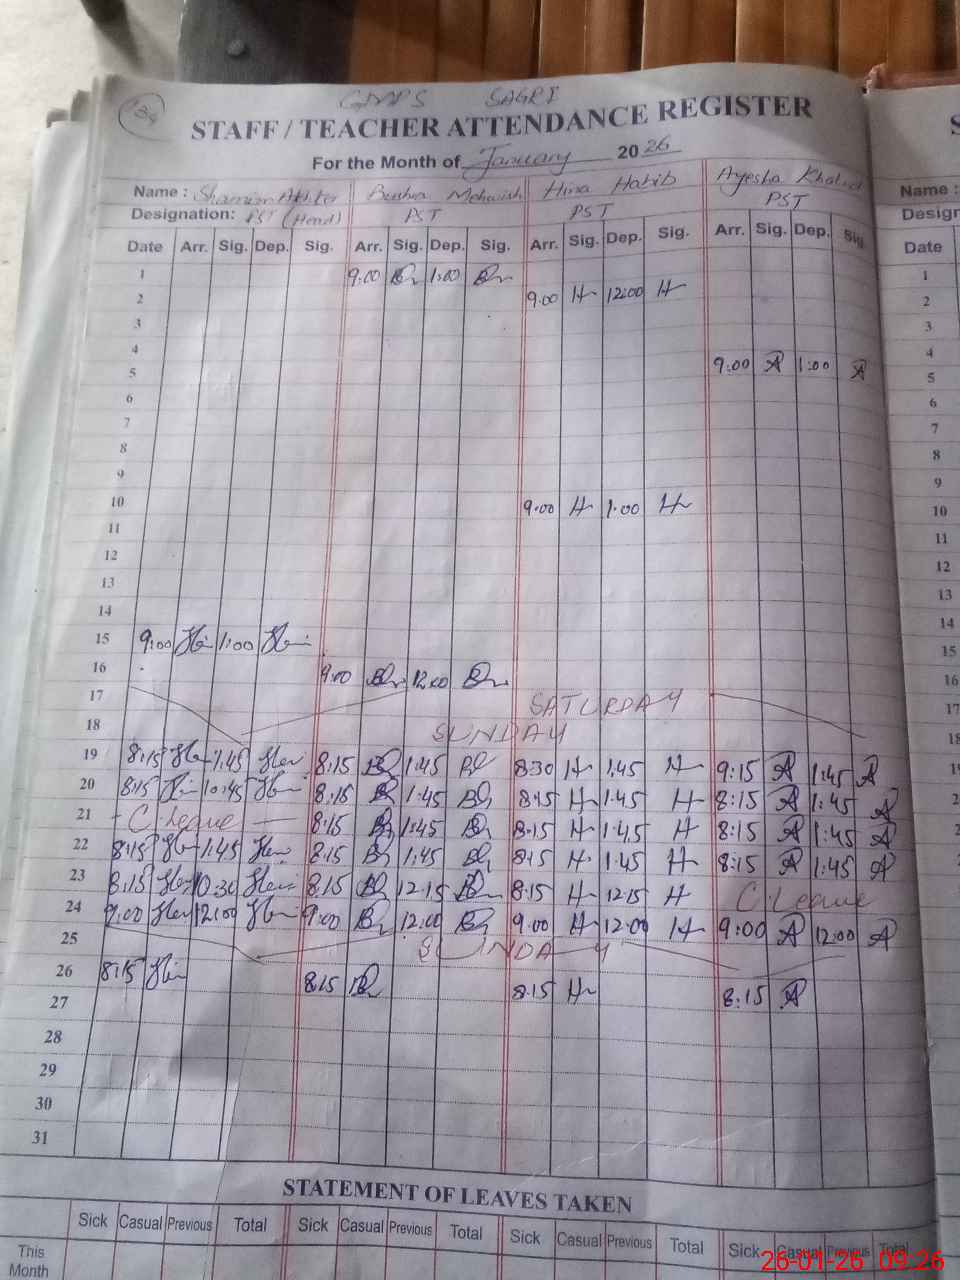 GMPS SAGRI
STAFF / TEACHER ATTENDANCE REGISTER
For the Month of January 2026
Name : Shamim Akhter Bushra Mehwish Hina Habib Ayesha Khalid Name :
Designation: PST (Head) PST PST PST
Date Arr. Sig. Dep. Sig. Arr. Sig. Dep. Sig. Arr. Sig. Dep. Sig. Arr. Sig. Dep. Sig. Date
1 9:00 1:00 1
2 9:00 H 12:00 H 2
3 3
4 4
5 9:00 A 1:00 A 5
6 6
7 7
8 8
9 9
10 9:00 H 1:00 H 10
11 11
12 12
13 13
14 14
15 9:00 1:00 15
16 9:00 12:00 16
17 SATURDAY 17
18 SUNDAY 18
19 8:15 1:45 8:15 1:45 8:30 H 1:45 H 9:15 A 1:45 A
20 8:15 10:45 8:15 1:45 8:15 H 1:45 H 8:15 A 1:45 A
21 C. Leave 8:15 1:45 8:15 H 1:45 H 8:15 A 1:45 A
22 8:15 1:45 8:15 1:45 8:15 H 1:45 H 8:15 A 1:45 A
23 8:15 10:30 8:15 12:15 8:15 H 12:15 H C. Leave
24 9:00 12:00 9:00 12:00 9:00 H 12:00 H 9:00 A 12:00 A
25 SUNDAY
26 8:15 8:15 8:15 H 8:15 A
27
28
29
30
31
STATEMENT OF LEAVES TAKEN
Sick Casual Previous Total Sick Casual Previous Total Sick Casual Previous Total Sick Casual Previous Total
This Month
26-01-26 09:26